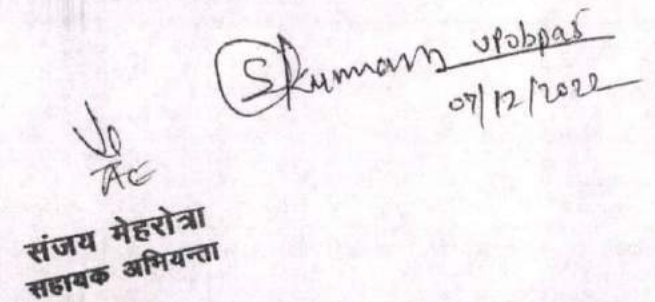 SKumar
07/12/2022
AE
संजय मेहरोत्रा
सहायक अभियन्ता